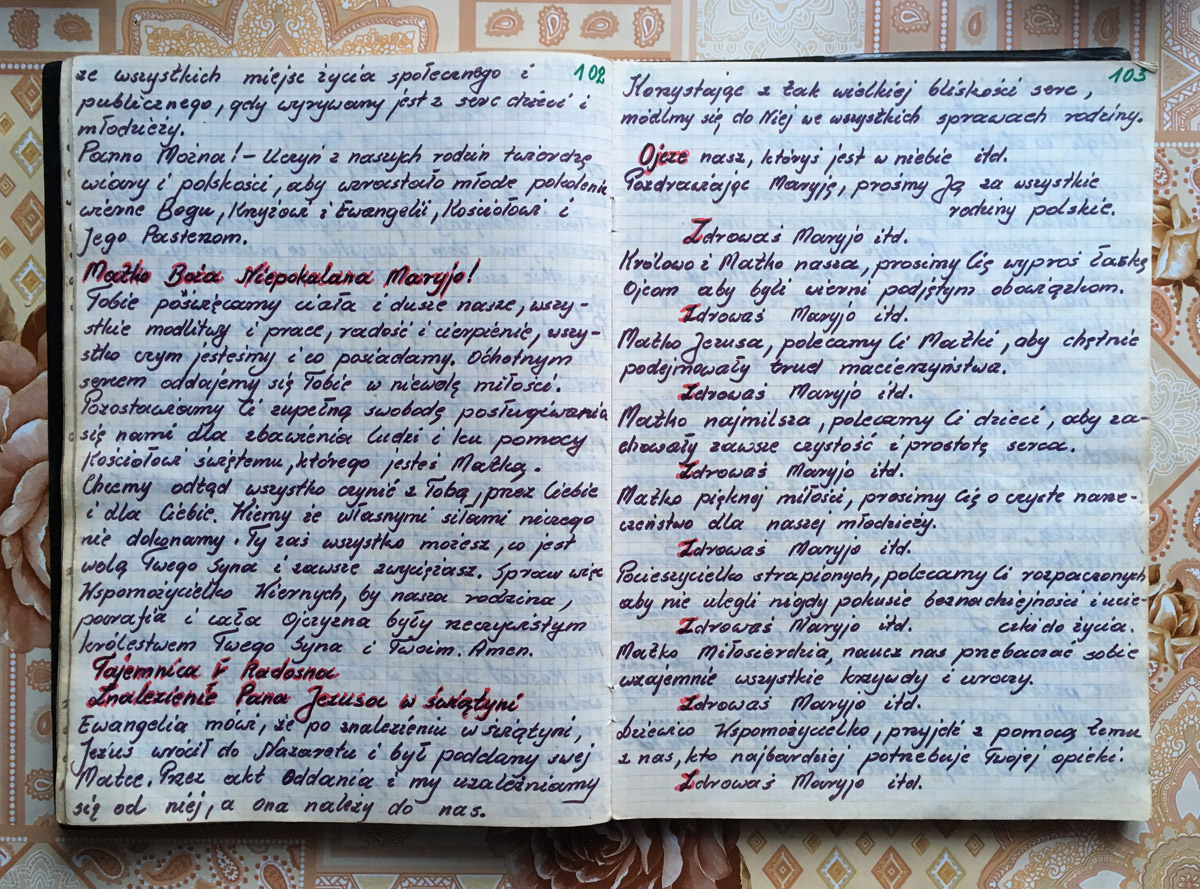 102
ze wszystkich miejsc życia społecznego i
publicznego, gdy wyrywany jest z serc dzieci i
młodzieży.
Panno Można! – Uczyń z naszych rodzin twierdzę
wiary i polskości, aby wzrastało młode pokolenie
wierne Bogu, Krzyżowi i Ewangelii, Kościołowi i
Jego Pasterzom.
Matko Boża Niepokalana Maryjo!
Tobie poświęcamy ciała i dusze nasze, wszy-
stkie modlitwy i prace, radość i cierpienie, wszy-
stko czym jesteśmy i co posiadamy. Ochotnym
sercem oddajemy się Tobie w niewolę miłości.
Pozostawiamy Ci zupełną swobodę posługiwania
się nami dla zbawienia ludzi i ku pomocy
Kościołowi świętemu, którego jesteś Matką.
Chcemy odtąd wszystko czynić z Tobą, przez Ciebie
i dla Ciebie. Wiemy że własnymi siłami niczego
nie dokonamy. Ty zaś wszystko możesz, co jest
wolą Twego Syna i zawsze zwyciężasz. Spraw więc
Wspomożycielko Wiernych, by nasza rodzina,
parafia i cała Ojczyzna były rzeczywistym
królestwem Twego Syna i Twoim. Amen.
Tajemnica V Radosna
Znalezienie Pana Jezusa w świątyni
Ewangelia mówi, że po znalezieniu w świątyni,
Jezus wrócił do Nazaretu i był poddany swej
Matce. Przez akt oddania i my uzależniamy
się od niej, a ona należy do nas.
103
Korzystając z tak wielkiej bliskości serc,
módlmy się do Niej we wszystkich sprawach rodziny.
Ojcze nasz, któryś jest w niebie itd.
Pozdrawiając Maryję, prośmy Ją za wszystkie
rodziny polskie.
Zdrowaś Maryjo itd.
Królowo i Matko nasza, prosimy Cię wyproś łaskę
Ojcom aby byli wierni podjętym obowiązkom.
Zdrowaś Maryjo itd.
Matko Jezusa, polecamy Ci Matki, aby chętnie
podejmowały trud macierzyństwa.
Zdrowaś Maryjo itd.
Matko najmilsza, polecamy Ci dzieci, aby za-
chowały zawsze czystość i prostotę serca.
Zdrowaś Maryjo itd.
Matko pięknej miłości, prosimy Cię o czyste narze-
czeństwo dla naszej młodzieży.
Zdrowaś Maryjo itd.
Pocieszycielko strapionych, polecamy Ci rozpaczonych
aby nie ulegli nigdy pokusie beznadziejności i ucie-
Zdrowaś Maryjo itd. czki do życia.
Matko Miłosierdzia, naucz nas przebaczać sobie
wzajemnie wszystkie krzywdy i urazy.
Zdrowaś Maryjo itd.
Dziewico Wspomożycielko, przyjdź z pomocą temu
z nas, kto najbardziej potrzebuje Twojej opieki.
Zdrowaś Maryjo itd.